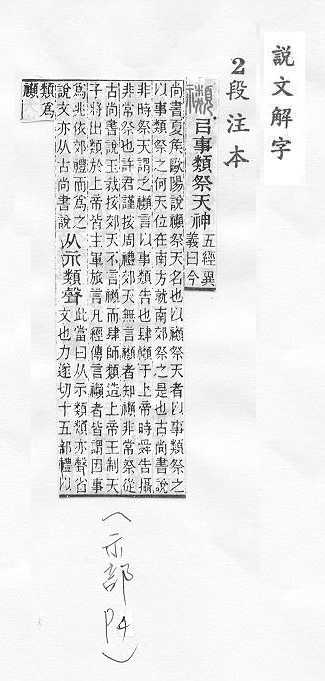 說文解字
2段注本
禷 㠯事類祭天神 五經異
義曰今
尚書夏侯歐陽說禷祭天名也以禷祭天者以事類祭之
以事類祭之何天位在南方就南郊祭之是也古尚書說
非時祭天謂之禷言以事類告也肆禷于上帝時舜告攝
非常祭也許君謹按周禮郊天無言禷者知禷非常祭從
古尚書說玉裁按郊天不言禷而肆師類造上帝王制天
子將出類於上帝皆主軍旅言凡經傳言禷者皆謂因事
爲兆依郊禮而爲之
說文亦从古尚書說
从示類聲
此當曰从示類類亦聲省
文也力遂切十五部禮以
類爲
禷
(示部 P4)